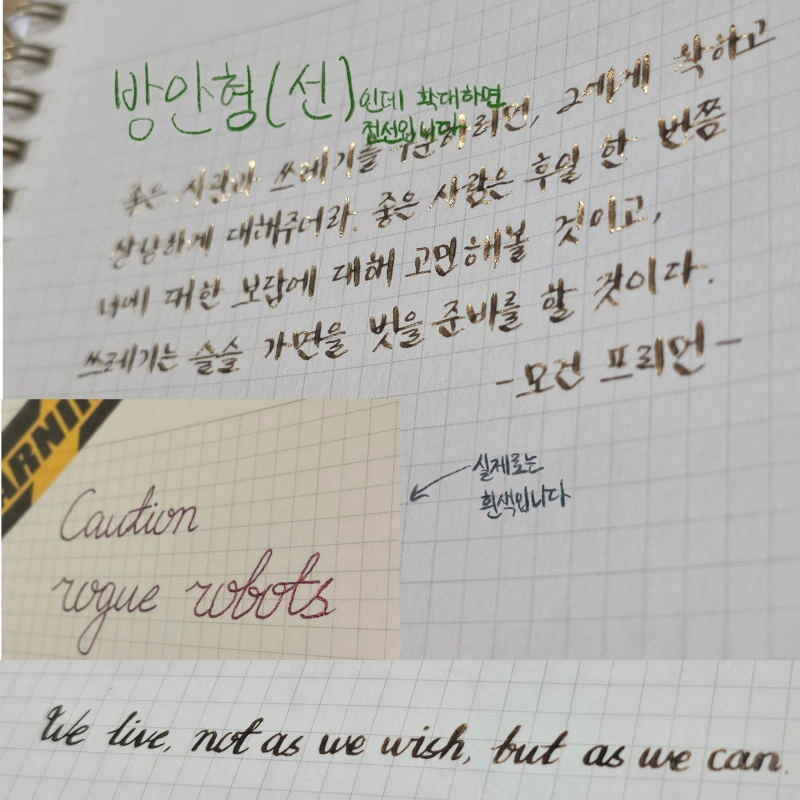 방안형(선)인데 확대하면
점선입니다
좋은 사람과 쓰레기를 구분하려면, 그에게 착하고
상냥하게 대해주어라. 좋은 사람은 후일 한 번쯤
너에 대한 보답에 대해 고민해볼 것이고,
쓰레기는 슬슬 가면을 벗을 준비를 할 것이다.
-모건 프리먼-
ARNIN
실제로는
흰색입니다
Caution
rogue robots
We live, not as we wish, but as we can.